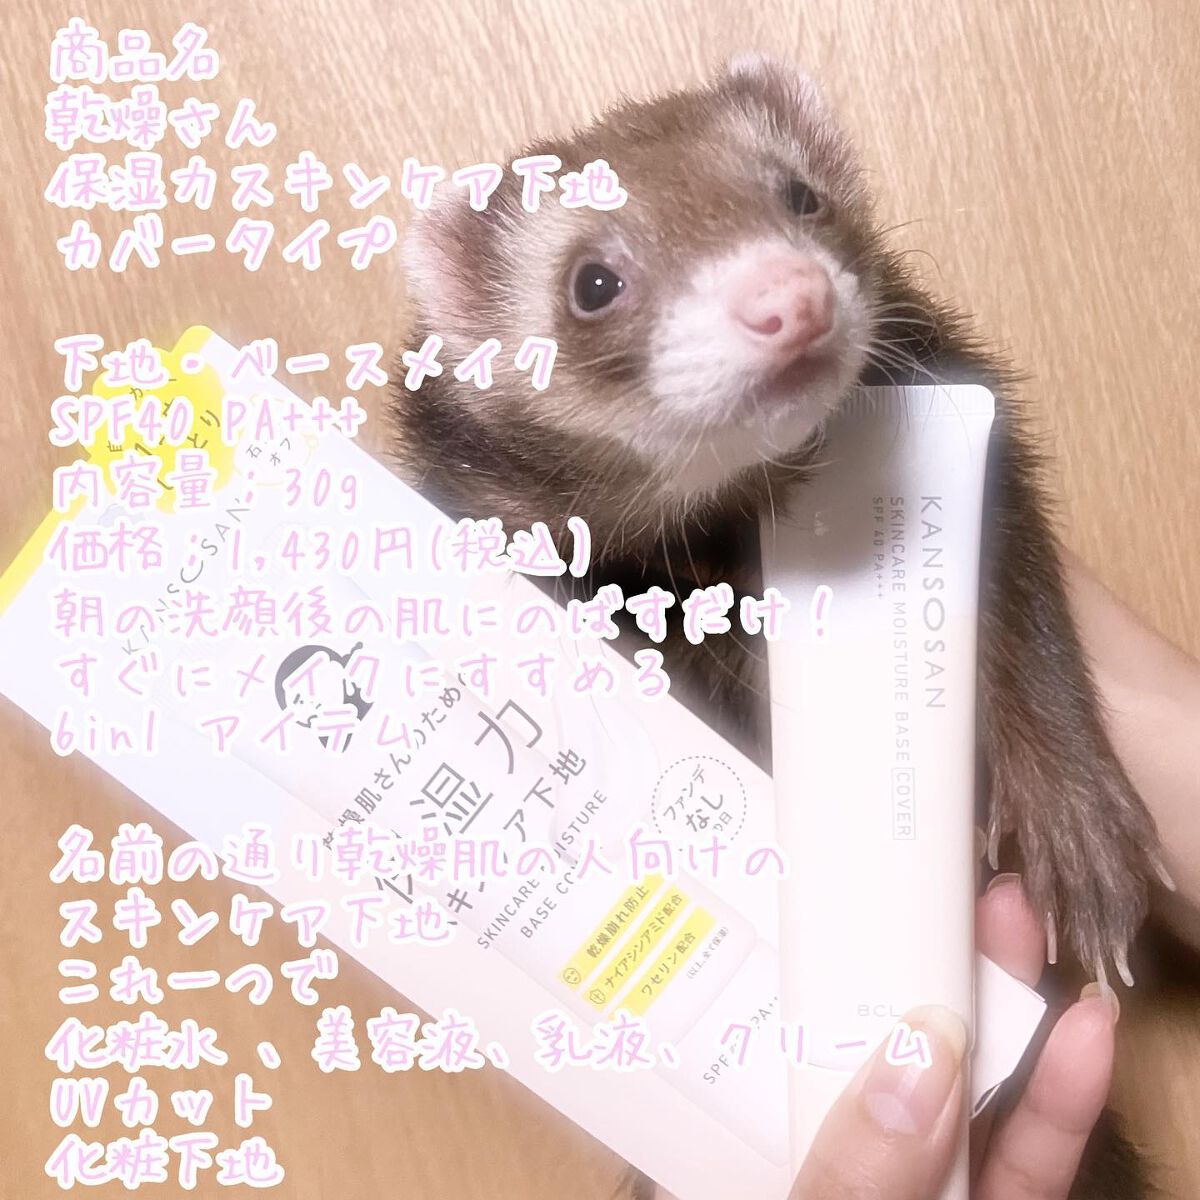 商品名
乾燥さん
保湿力スキンケア下地
カバータイプ
下地・ベースメイク
SPF40 PA+++
内容量：30g
価格：1,430円(税込)
朝の洗顔後の肌にのばすだけ！
すぐにメイクにすすめる
6in1 アイテム
名前の通り乾燥肌の人向けの
スキンケア下地
これ一つで
化粧水、美容液、乳液、クリーム
UVカット
化粧下地
KANSOSAN
乾燥肌さんのため
保湿力
スキンケア下地
SKINCARE MOISTURE
BASE CO
ファンデ
なし
の日
乾燥崩れ防止
ナイアシンアミド配合
ワセリン配合
(以上、全て保湿)
PA++
KANSOSAN
SKINCARE MOISTURE BASE COVER
SPF 40 PA+++
BCL